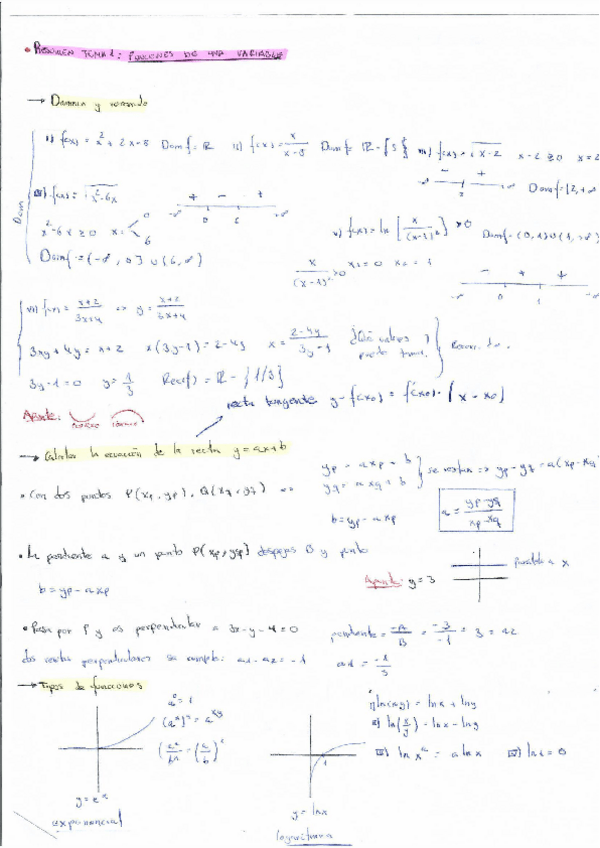 • RESUMEN TEMA 1: FUNCIONES DE UNA VARIABLE
→ Dominio y
Dom
i) f(x) = x² + 2x - 8 Dom f = ℝ ii) f(x) = x / x-5 Dom f = ℝ - {5} iii) f(x) = √x-2 x-2 ≥ 0 x = 2
- + 2 Dom f = [2, +∞
f(x) = √x²-6x + - + -∞ 0 6 +∞
x² - 6x ≥ 0 x = 0 6
Dom f = (-∞, 0] ∪ (6, ∞)
v) f(x) = ln [x / (x-1)²] > 0 Dom f = (0, 1) ∪ (1, +∞)
x / (x-1)² > 0 x1 = 0 x2 = 1
- + + -∞ 0 1
f(x) = x+2 / 3x+4 ⇒ y = x+2 / 3x+4
3xy + 4y = x + 2 x(3y-1) = 2-4y x = 2-4y / 3y-1 ¿Qué valores y puede tomar?
3y - 1 = 0 y = 1/3 Rec(f) = ℝ - {1/3}
Apunte:
recta tangente y - f(x0) = f'(x0) · (x - x0)
→ Calcular la ecuación de la recta y = ax + b
• Con dos puntos P(xp, yp), Q(xq, yq) ⇒ yp = axp + b
yq = axq + b se restan ⇒ yp - yq = a(xp - xq)
b = yp - axp a = yp-yq / xp-xq
• La pendiente a y un punto P(xp, yp) despejas B y punto
b = yp - axp
Apunte: y = 3 paralela a x
• Pasa por P y es perpendicular a 3x - y - 4 = 0 pendiente = -A / B = -3 / -1 = 3 = a2
dos rectas perpendiculares se cumple: a1 · a2 = -1 a1 = -1 / 3
→ Tipos de funciones
a⁰ = 1
(aˣ)ʸ = aˣʸ
y = eˣ
exponencial
1
y = ln x
logarítmica
i) ln(xy) = ln x + ln y
ii) ln(x/y) = ln x - ln y
iii) ln xᵃ = a ln x iv) ln 1 = 0